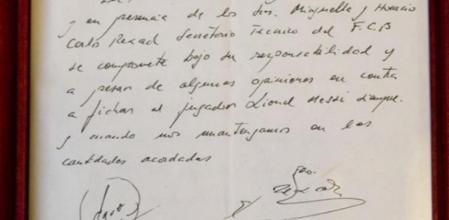 y en presencia de los Srs. Minguella y Horacio
Carlos Rexach Secretario Técnico del F.C.B
se compromete bajo su responsabilidad y
a pesar de algunas opiniones en contra
a fichar al jugador Lionel Messi siempre
y cuando nos mantengamos en las
cantidades acordadas